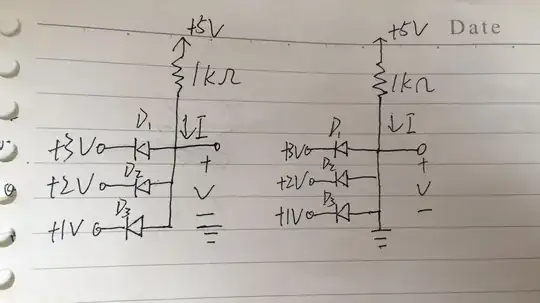 +5V +5V Date
1kΩ 1kΩ
D1 ↓I D1 ↓I
+3V + +3V +
D2 D2
+2V V +2V V
D3 − D3 −
+1V +1V